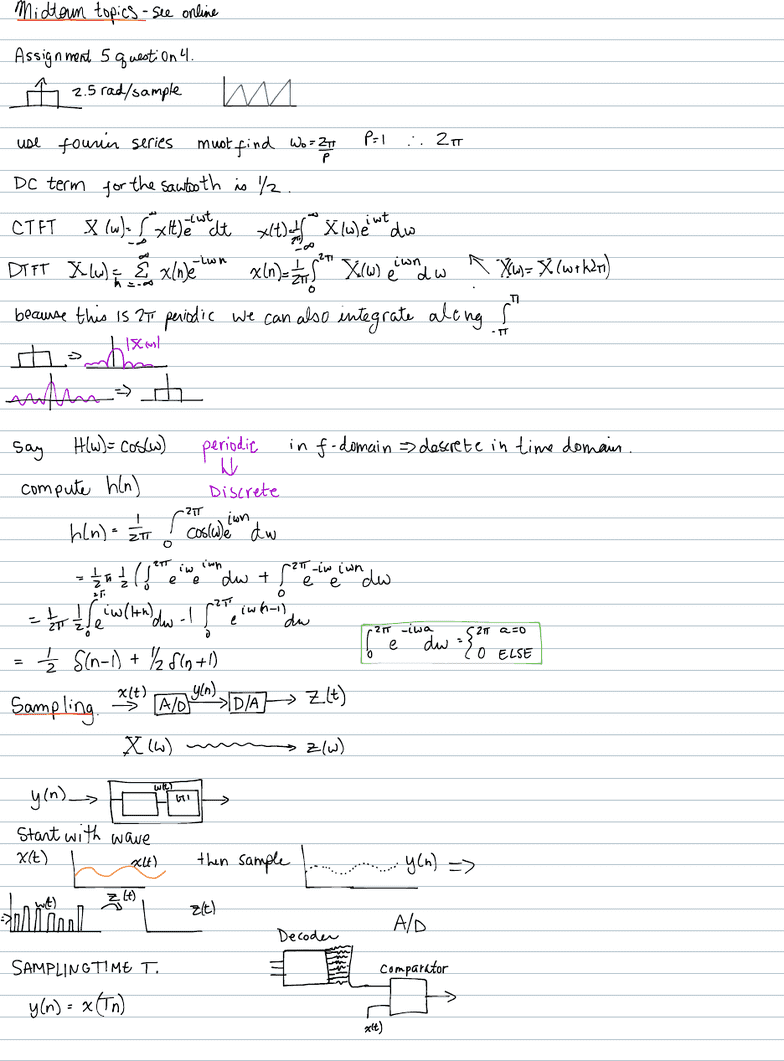 Midterm topics - see online
Assignment 5 question 4.
2.5 rad/sample
use fourier series must find ω₀=2π/P P=1 ∴ 2π
DC term for the sawtooth is 1/2.
CTFT X(ω)=∫_{-∞}^{∞} x(t)e^{-iωt}dt x(t)=1/2π ∫_{-∞}^{∞} X(ω)e^{iωt}dω
DTFT X(ω)= Σ_{n=-∞}^{∞} x(n)e^{-iωn} x(n)=1/2π ∫_0^{2π} X(ω) e^{iωn}dω ↖ X(ω)= X(ω+k2π)
because this is 2π periodic we can also integrate along ∫_{-π}^{π}
⇒ |X(ω)|
⇒
say H(ω)=cos(ω) periodic in f-domain ⇒ descrete in time domain.
⇓
compute h(n) Discrete
h(n) = 1/2π ∫_0^{2π} cos(ω)e^{iωn}dω
= 1/2π 1/2 (∫_0^{2π} e^{iω} e^{iωn} dω + ∫_0^{2π} e^{-iω} e^{iωn}dω
= 1/2π 1/2 ∫_0^{2π} e^{iω(1+n)}dω -1 ∫_0^{2π} e^{iω(n-1)}dω
∫_0^{2π} e^{-iωa} dω = {2π a=0
0 ELSE
= 1/2 δ(n-1) + 1/2 δ(n+1)
Sampling. x(t) → A/D y(n) → D/A → Z(t)
X(ω) → z(ω)
y(n) → w(t) LTI →
Start with wave
x(t) x(t) then sample y(n) ⇒
⇒ w(t) Z(t) z(t) A/D
Decoder
SAMPLING TIME T. comparator
y(n) = x(Tn)
x(t)